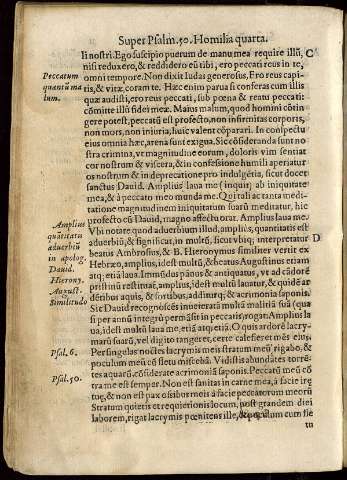 Super Psalm. 50. Homilia quarta.
li nostri. Ego suscipio puerum de manu mea require illū, C
nisi reduxero, & reddidero eū tibi, ero peccati reus in te,
omni tempore. Non dixit Iudas generosus, Ero reus capi-
tis, & vitæ, coram te. Hæc enim parua si conferas cum illis
quæ audisti, ero reus peccati, sub pœna & reatu peccati:
cōmitte illū fidei meæ. Maius malum, quod homini cōtin
gere potest, peccatū est profecto, non infirmitas corporis,
non mors, non iniuria, huic valent cōparari. In conspectu
eius omnia hæc, arena sunt exigua. Sic cōsideranda sunt no
stra crimina, vt magnitudine eorum, doloris vim sentiat
cor nostrum & viscera, & in confessione humili aperiatur
os nostrum & in deprecatione pro indulgētia, sicut docet
sanctus Dauid. Amplius laua me (inquit) ab iniquitate
mea, & à peccato meo munda me. Qui tali ac tanta medi
tatione magnitudinem iniquitatum suarū meditatur, hic
profecto cū Dauid, magno affectu orat. Amplius laua me.
Vbi notate quod aduerbium illud, amplius, quantitatis est
aduerbiū, & significat, in multū, sicut vbiq; interpretatur D
beatus Ambrosius, & B. Hieronymus similiter vertit ex
Hebræo, amplius, idest multū, & beatus Augustinus etiam
atq; etiā laua. Immūdus pānus & antiquatus, vt ad cādorē
pristinū restituat, amplius, idest multū lauatur, & quidē ar
dētibus aquis, & sortibus, adituriq; & acrimonia saponis.
Sic Dauid recognoscēs inueteratā multū malitiā suā (qua
si per annū integrū permāsit in peccatis) rogat. Amplius la
ua, idest multū laua me etiā atq; etiā. O quis ardorē lacry-
marū suarū, vel digito tangeret, certe calefieret mēs eius.
Per singulas noctes lacrymis meis stratum meū rigabo, &
poculum meū cū fletu miscebā. Vidistis abundātes torrē-
tes aquarū, cōsiderate acrimoniā saponis. Peccatū meū cō
tra me est semper. Non est sanitas in carne mea, à facie iræ
tuæ, & non est pax ossibus meis à facie peccatorum meorū
Stratum quietis et requietionis locum, post grandem diei
laborem, rigat lacrymis pœnitens ille, & poculum cum fle
tu
Peccatum
quantū ma
lum.
Amplius
quātitatis
aduerbiū
in apolog.
Dauid.
Hierony.
August.
Similitudo
Psal. 6.
Psal. 50.